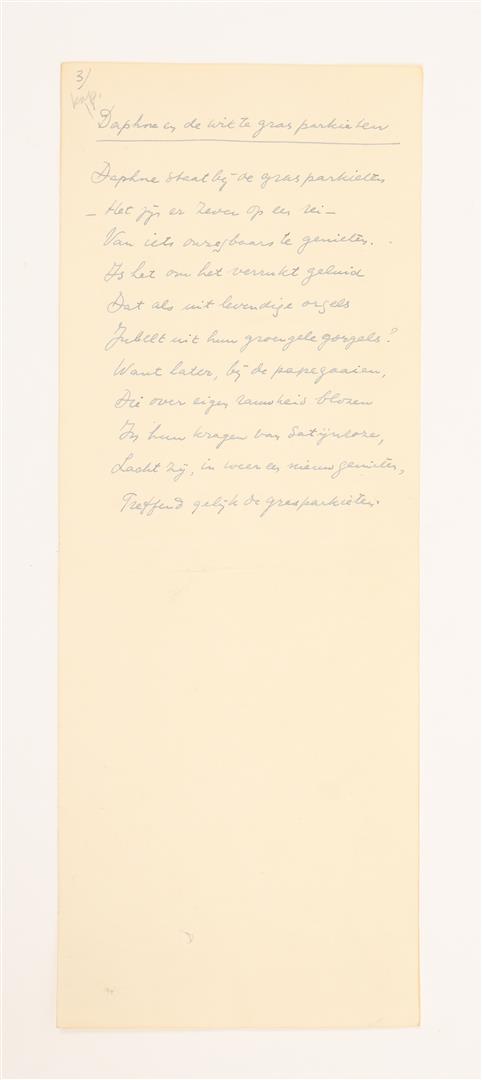 3/
Daphne en de witte grasparkieten
Daphne staat bij de grasparkieten
– Het zijn er zeven op een rei –
Van iets onzegbaars te genieten.
Is het om het verrukt geluid
Dat als uit levendige orgels
Jubelt uit hun groengele gorgels?
Want later, bij de papegaaien,
Die over eigen rauwheid blozen
In hun kragen van satijnroze,
Lacht zij, in weer een nieuw genieten,
Treffend gelijk de grasparkieten.